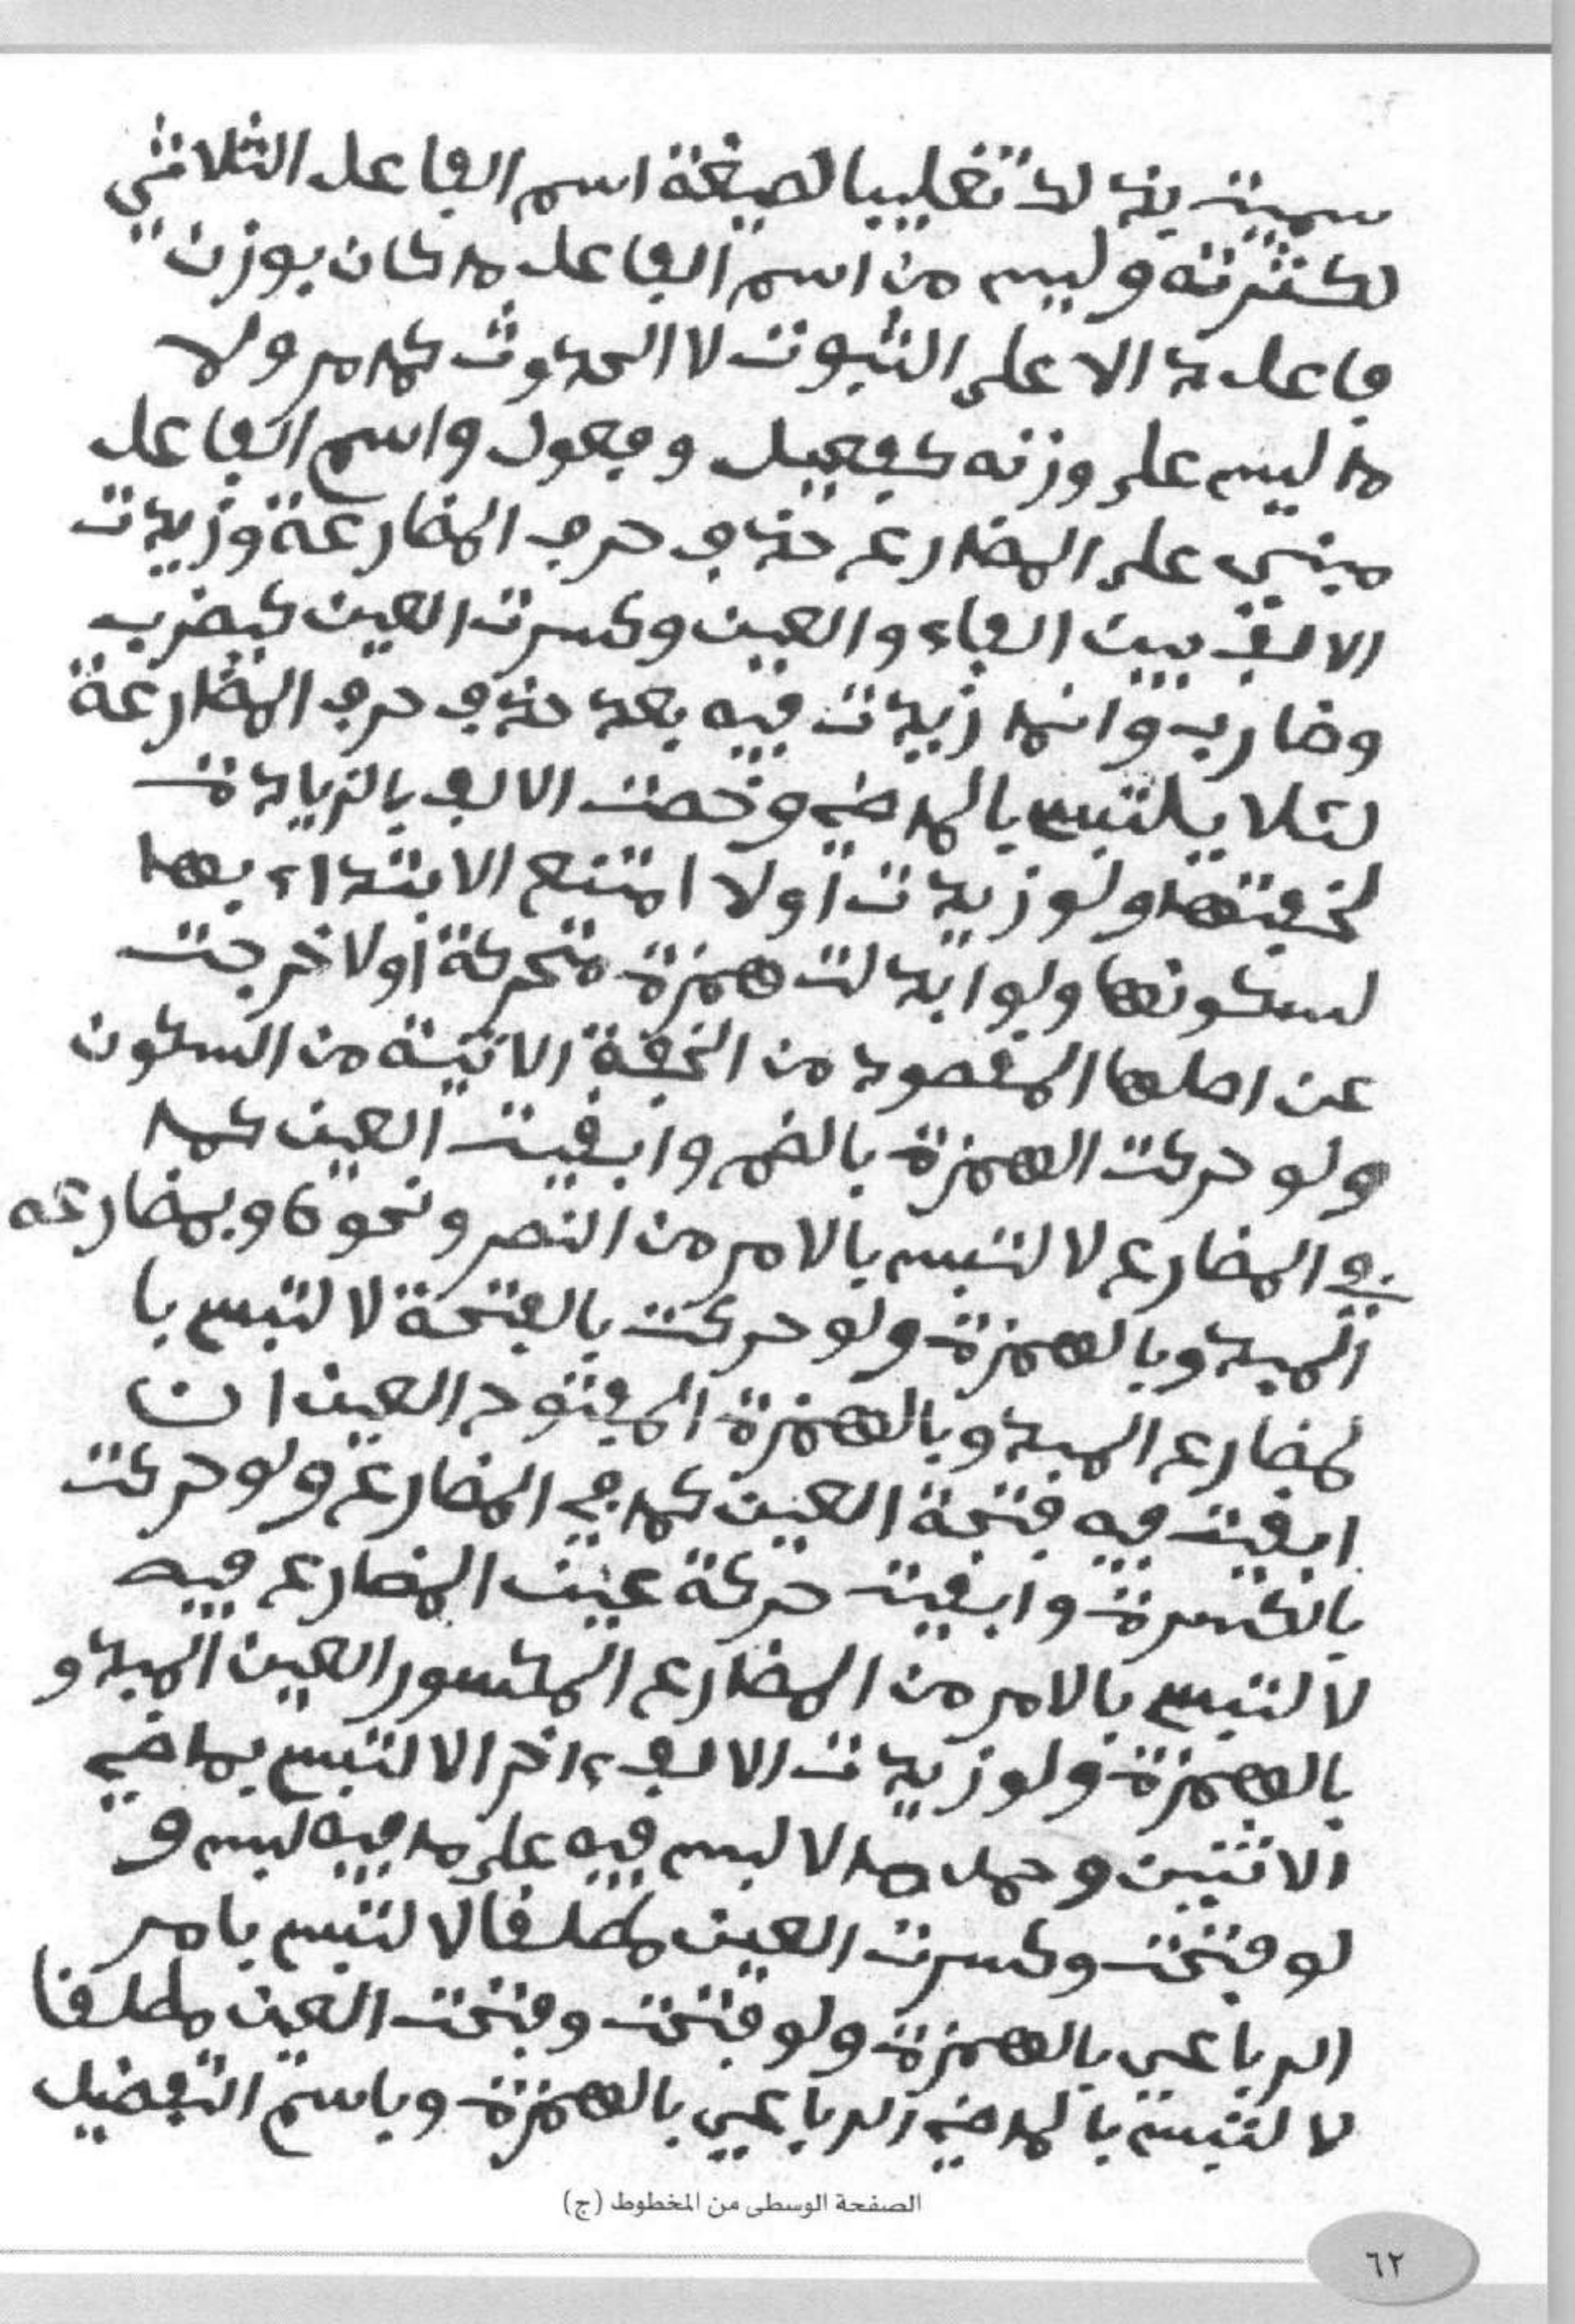 سميت بذلك تغليبا لصيغة اسم الفاعل الثلاثي
لكثرته وليس من اسم الفاعل ما كان بوزن
فاعل دالا على الثبوت لا الحدوث كما مر ولا
ما ليس على وزنه كفعيل وفعول واسم الفاعل
مبني على المضارع حذف حرف المضارعة وزيدت
الالف بين الفاء والعين وكسرت العين كيضرب
وضارب وانما زيدت فيه بعد حذف حرف المضارعة
لئلا يلتبس بالماضي وخصت الالف بالزيادة
لخفتها ولو زيدت اولا امتنع الابتداء بها
لسكونها ولو ابدلت همزة متحركة اولا خرجت
عن اصلها المقصود من الخفة الاتية من السكون
ولو حركت الهمزة بالضم وابقيت العين كما
في المضارع لالتبس بالامر من النصر ونحوه وبمضارعه
المبدو بالهمزة ولو حركت بالفتحة لالتبس با
لمضارع المبدو بالهمزة المفتوح العين ان
ابقيت فيه فتحة العين كما في المضارع ولو حركت
بالكسرة وابقيت حركة عين المضارع فيه
لالتبس بالامر من المضارع المكسور العين المبدو
بالهمزة ولو زيدت الالف ءاخرا لالتبس بماضي
الاثنين وحمل ما لا لبس فيه على ما فيه لبس و
لو فتحت وكسرت العين مطلقا لالتبس بامر
الرباعي بالهمزة ولو فتحت وفتحت العين مطلقا
لالتبس بالماضي الرباعي بالهمزة وباسم التفضيل
الصفحة الوسطى من المخطوط (ج)
٦٢